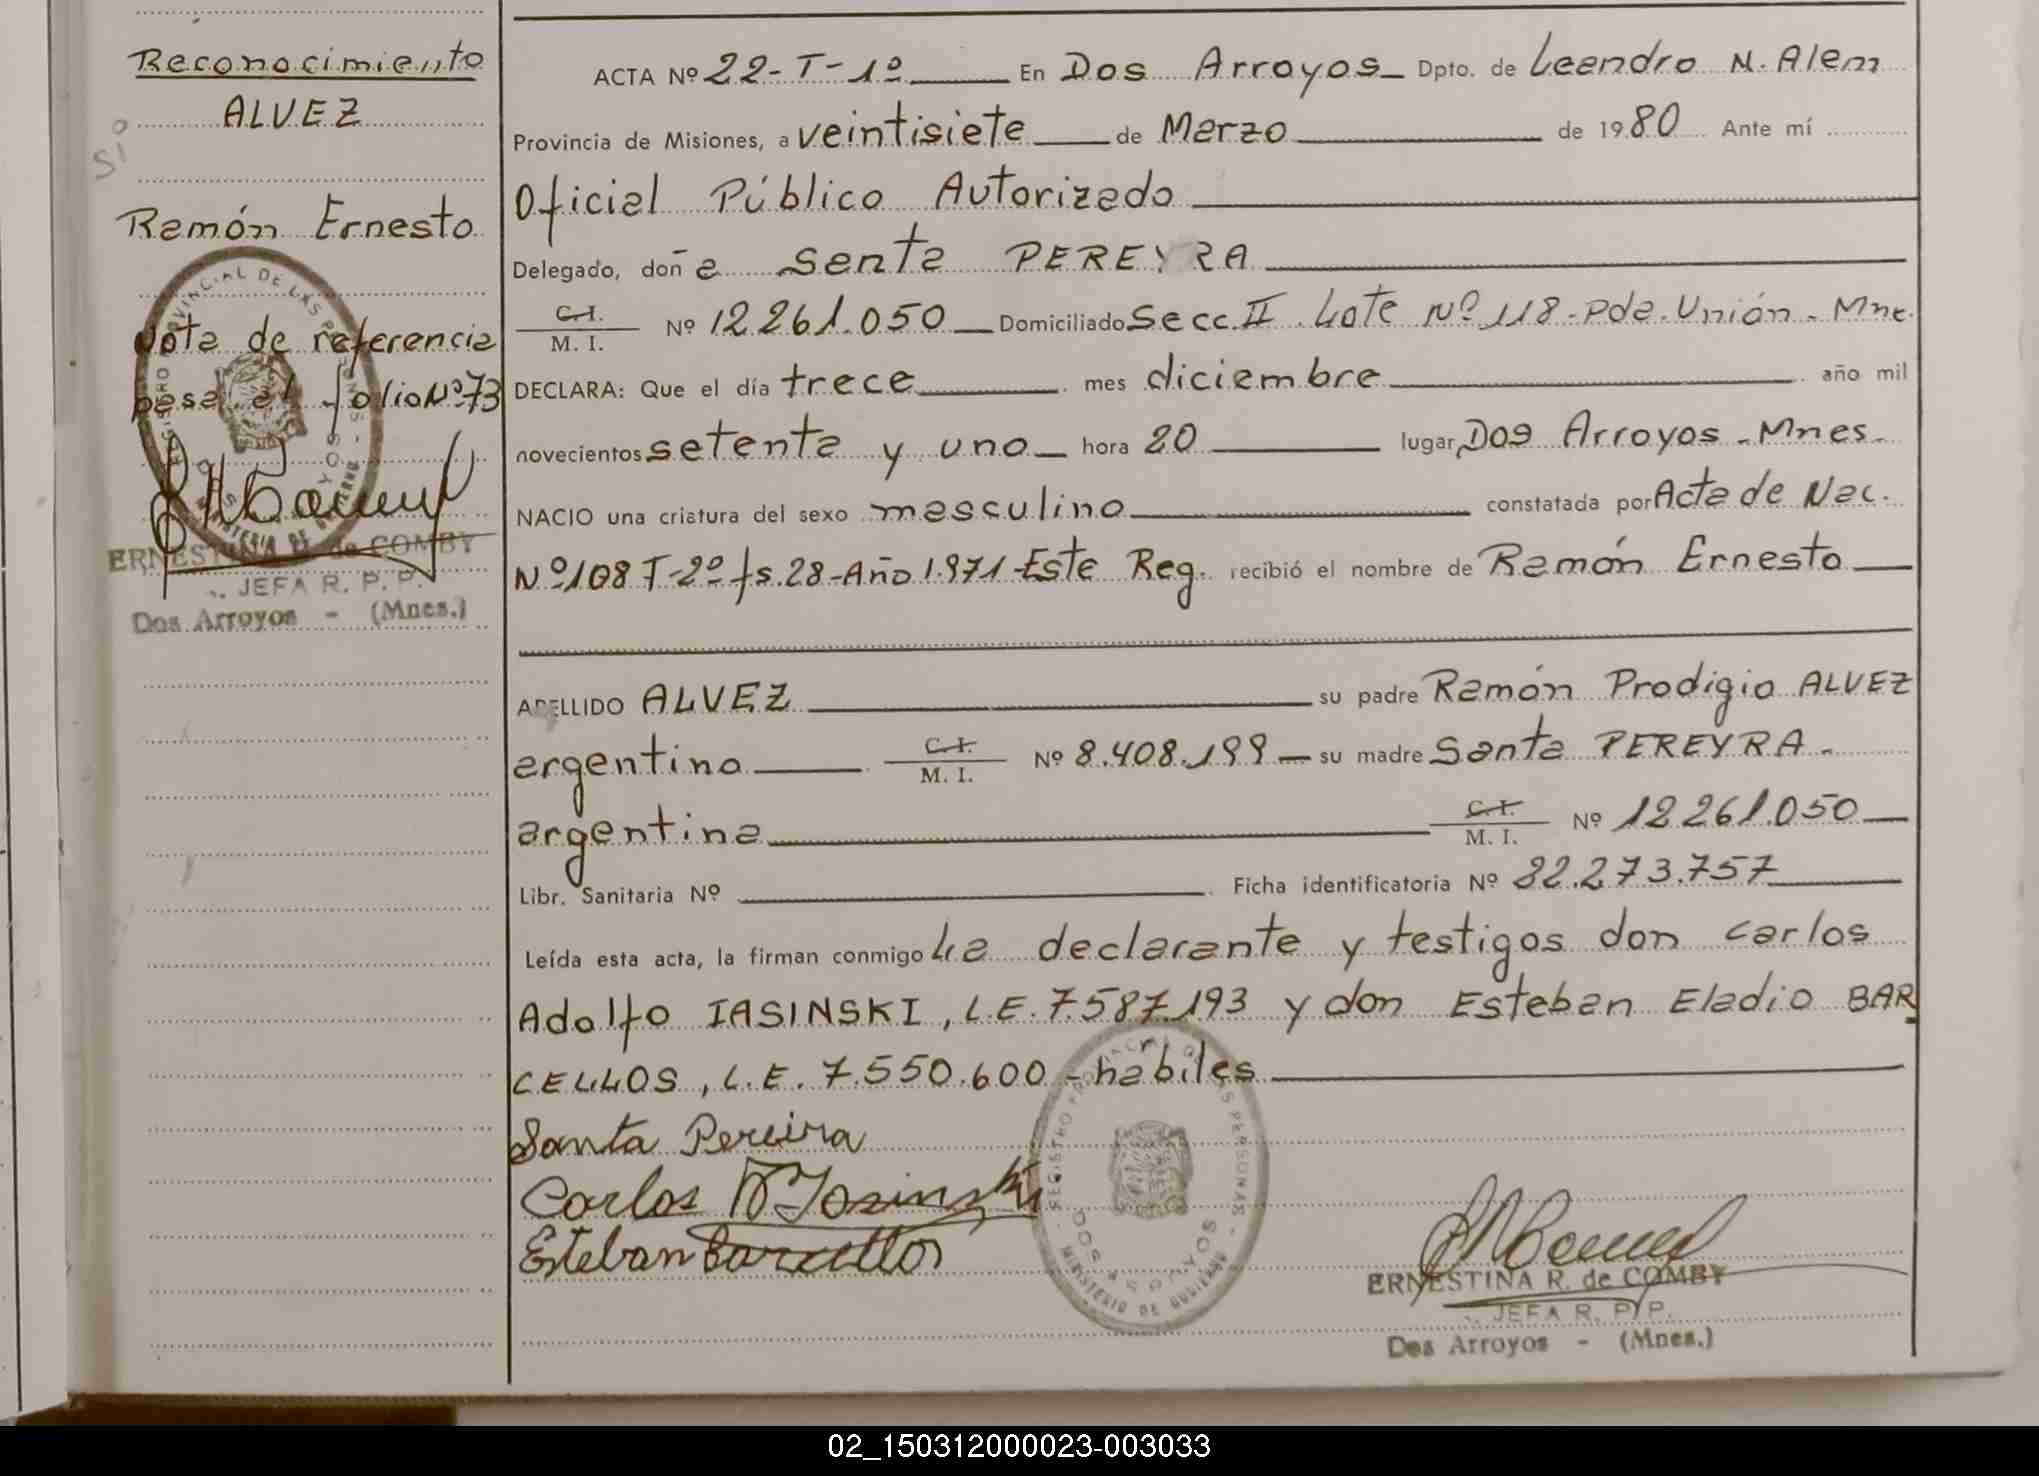 Reconocimiento
ALVEZ
Si
Ramón Ernesto
Nota de referencia
pasa al folio Nº 73
ERNESTINA R. de COMBY
JEFA R. P. P.
Dos Arroyos - (Mnes.)
ACTA Nº 22-T-1º En Dos Arroyos Dpto. de Leandro N. Alem
Provincia de Misiones, a veintisiete de Marzo de 1980 Ante mí
Oficial Público Autorizado
Delegado, doña Santa PEREYRA
C.I. / M. I. Nº 12.261.050 Domiciliado Secc. II Lote Nº 118 - Pda. Unión - Mnes.
DECLARA: Que el día trece mes diciembre año mil
novecientos setenta y uno hora 20 lugar Dos Arroyos - Mnes.
NACIO una criatura del sexo masculino constatada por Acta de Nac.
Nº 108 T-2º fs. 28 - Año 1.971 - Este Reg. recibió el nombre de Ramón Ernesto
APELLIDO ALVEZ su padre Ramón Prodigio ALVEZ
argentino C.I. / M. I. Nº 8.408.199 su madre Santa PEREYRA.
argentina C.I. / M. I. Nº 12.261.050
Libr. Sanitaria Nº Ficha identificatoria Nº 22.273.757
Leída esta acta, la firman conmigo La declarante y testigos don Carlos
Adolfo IASINSKI, L.E. 7.587.193 y don Esteban Eladio BAR
CELLOS, L.E. 7.550.600 - hábiles
Santa Pereira
Carlos A Iasinski
Esteban Barcellos
REGISTRO PROVINCIAL DE LAS PERSONAS - DOS ARROYOS - MINISTERIO DE GOBIERNO
ERNESTINA R. de COMBY
JEFA R. P. P.
Dos Arroyos - (Mnes.)
02_150312000023-003033